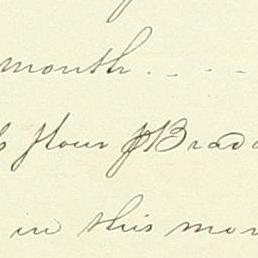 month . . . .
flour J Brad
in this mon